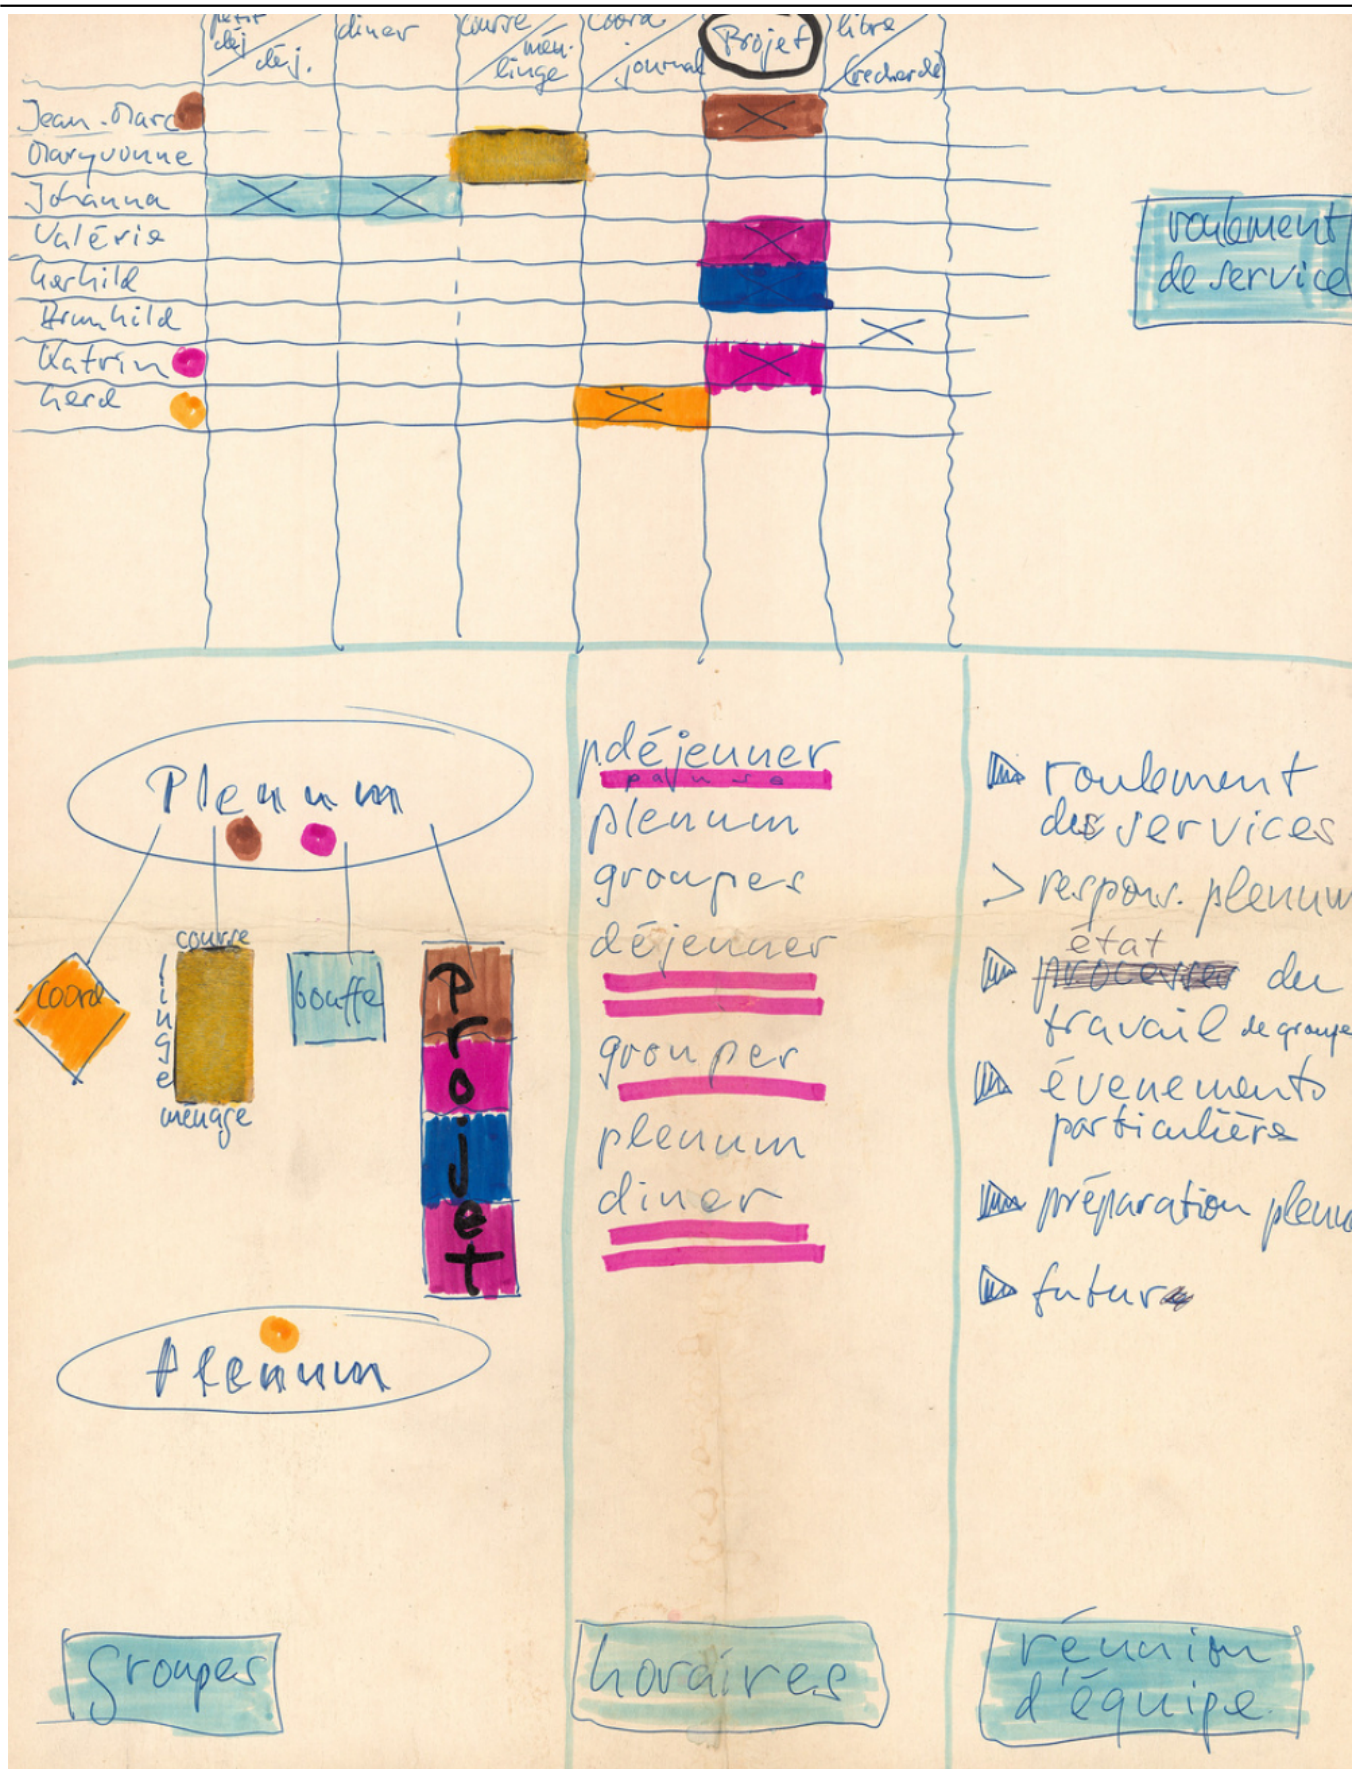 petit déj / déj.
diner
course / mén. linge
coord. / journal
Projet
libre (recherche)
Jean-Marc
Maryvonne
Johanna
Valérie
Gerhild
Brunhild
Katrin
Gerd
roulement
de service
Plenum
coord
course
linge
ménage
bouffe
Projet
Plenum
groupes
pdéjeuner
pause
plenum
groupes
déjeuner
grouper
plenum
diner
horaires
roulement
des services
> respons. plenum
état
du
travail de groupe
évenements
particulière
préparation plenu
futur
réunion
d'équipe